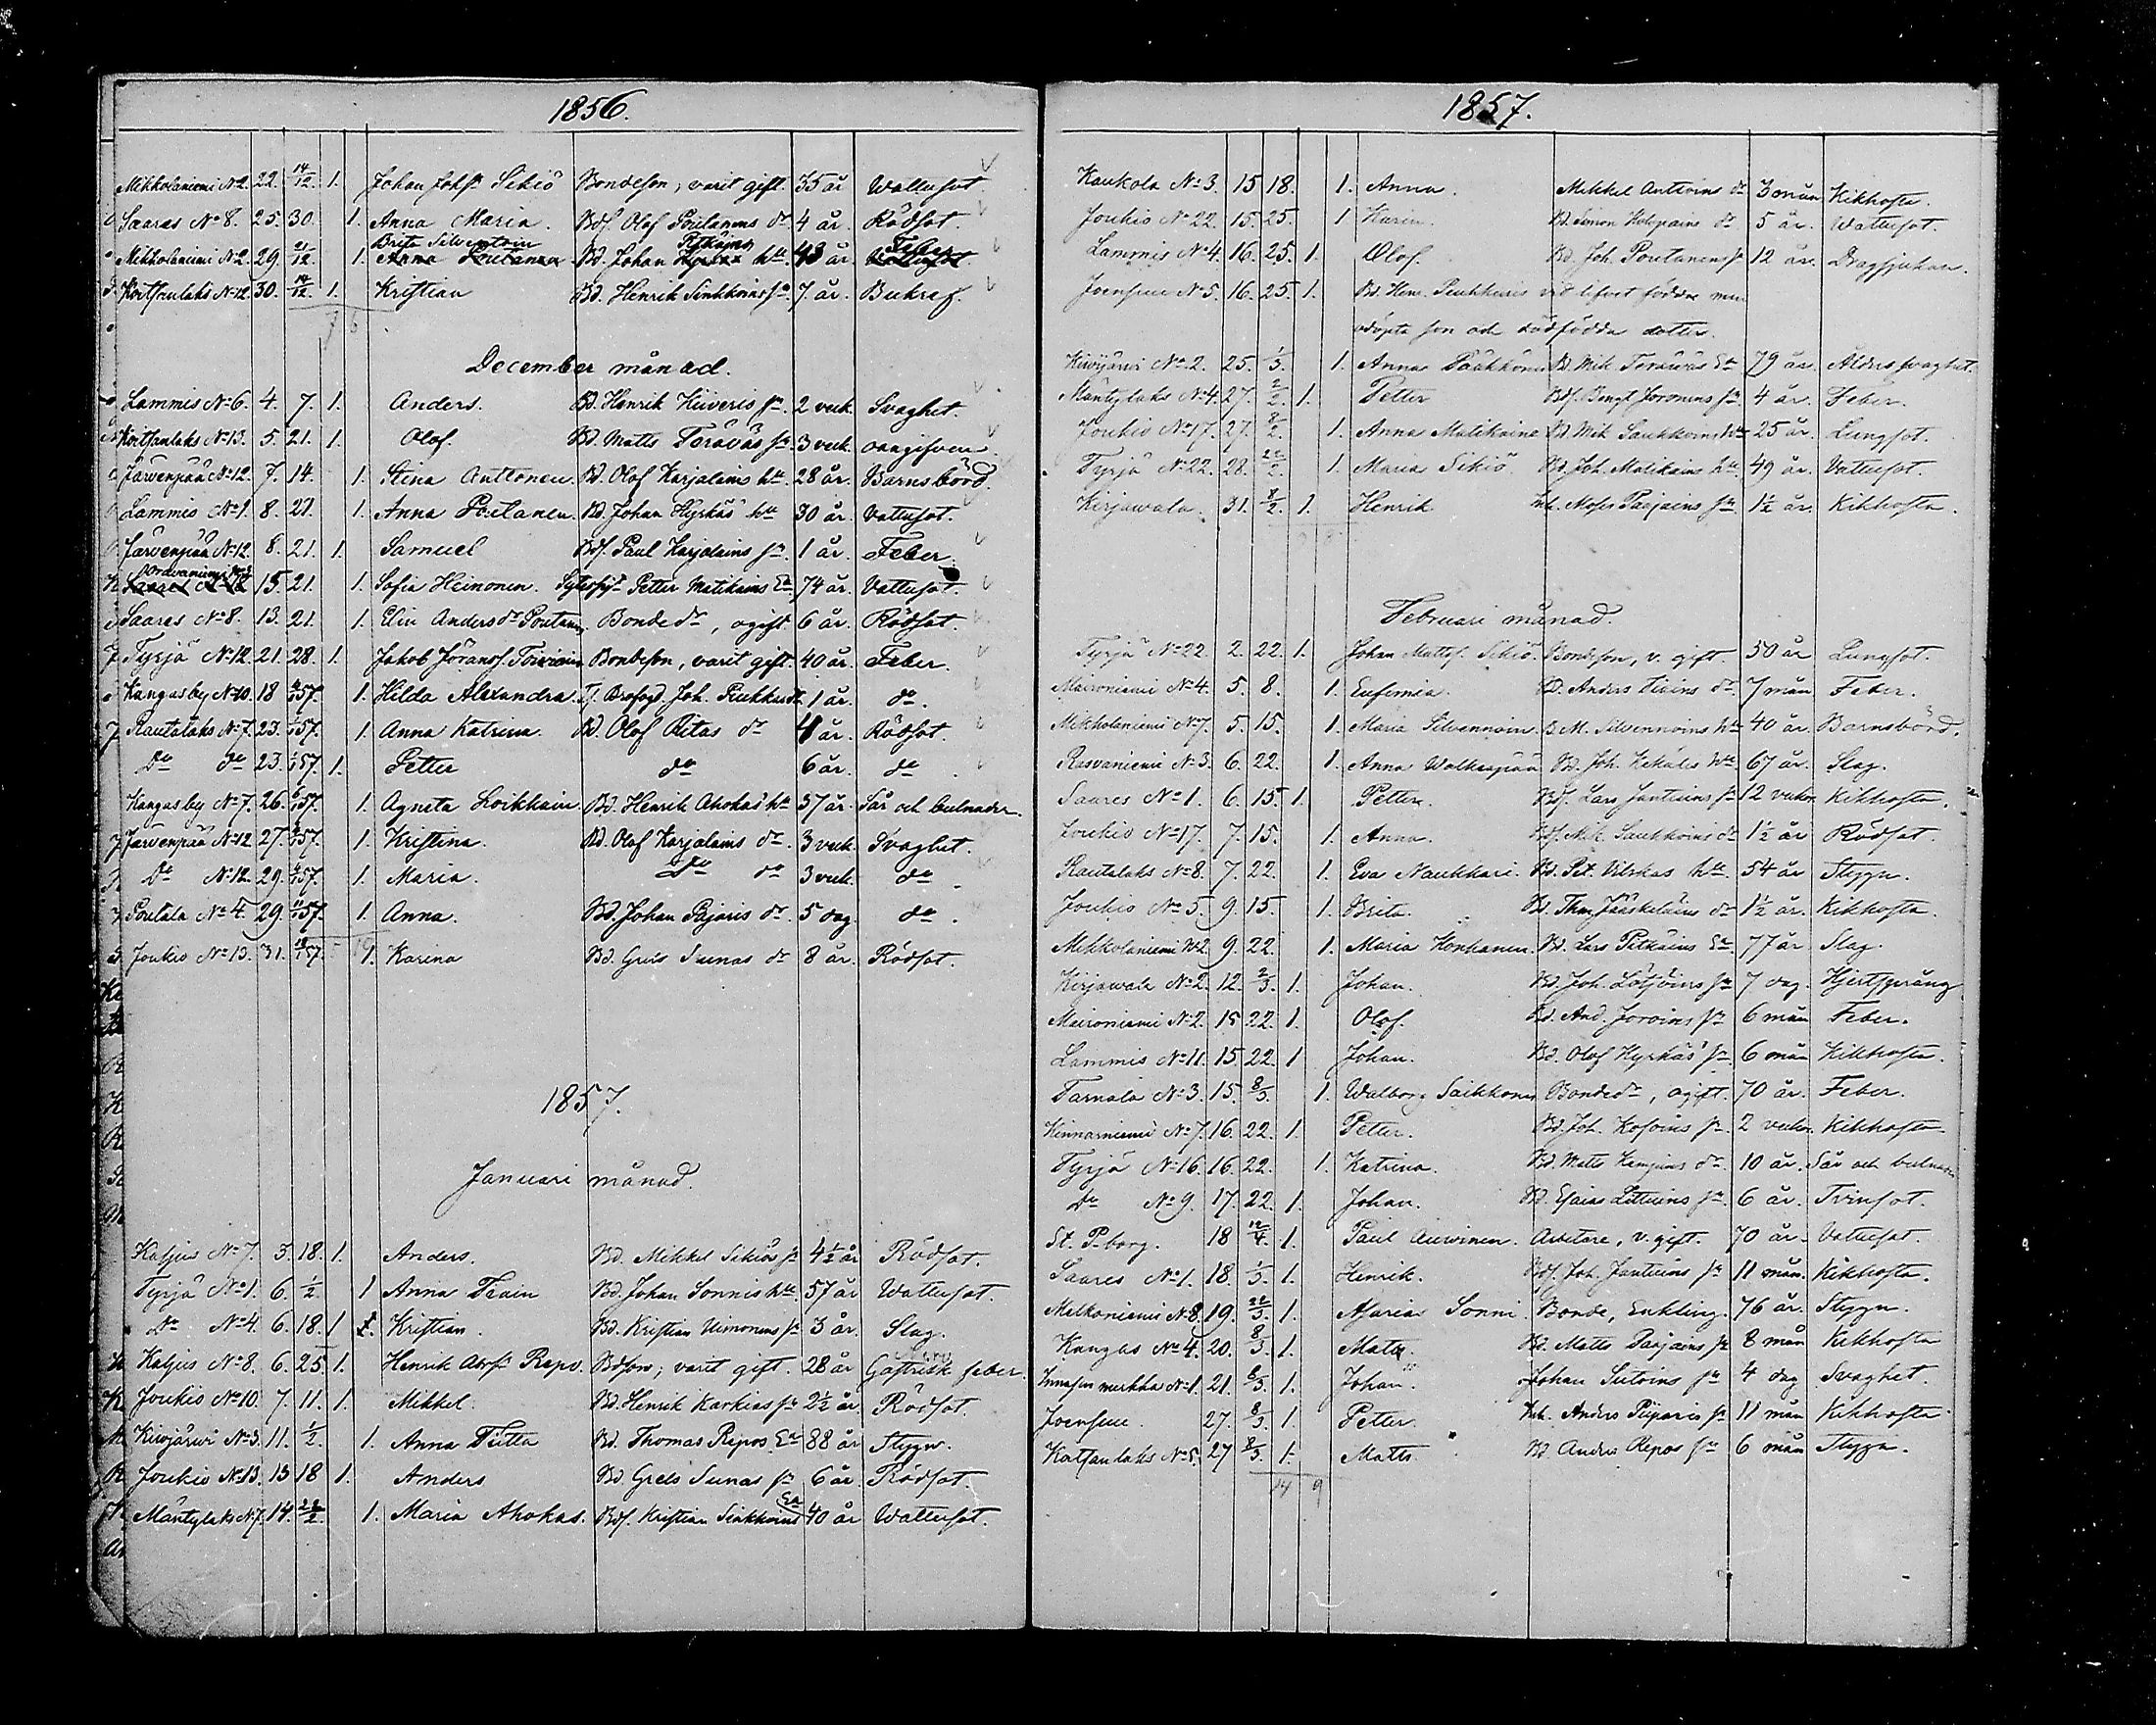 1856.
Mikkolaniemi No 2. 22. 14/12. 1. Johan Johss. Sikiö Bondeson, varit gift. 35 år Wattusot.
Saares No 8. 25. 30. 1. Anna Maria. Bdf. Olof Poutanens dr 4 år. Rödsot.
Brita Silventoin Pitkäins Feber
Mikkolaniemi No 2. 29. 21/12. 1. Anna Poutanen. Bd. Johan Hyrkäs hu. 43 år Wattusot.
Koitsanlaks No 12. 30. 14/12. 1. Kristian Bd. Henrik Sinkkoins sn 7. år. Bukref.
7 6
December månad.
Lammis No 6. 4. 7. 1. Anders. Bd. Henrik Kiiveris sn. 2 veck. Svaghet.
Koitsanlaks No 13. 5. 21. 1. Olof. Bd. Matts Teräväs sn. 3 veck. oangifven.
Järvenpää No 12. 7. 14. 1. Stina Anttonen. Bd. Olof Karjalains hu. 28 år. Barnsbörd.
Lammis No 1. 8. 21. 1. Anna Poutanen. Bd. Johan Hyrkäs hu 30 år. Vattusot.
Järvenpää No 12. 8. 21. 1. Samuel Bdf. Paul Karjalains sn. 1 år. Feber.
15. 21. 1. Sofia Heinonen. Petter Matikains Ea 74 år. Vattusot.
Saares No 8. 13. 21. 1. Elin Anders dr Poutanen. Bonde dr, ogift. 6 år. Rödsot.
Tyrjä No 12. 21. 28. 1. Jakob Jöransf. Toivoin Bondeson, varit gift. 40 år. Feber.
Kangasby No 10. 18 57. 1. Hilda Alexandra. Joh. Pukkus dr. 1 år. do.
Rautalaks No 7. 23. 1/1 57. 1. Anna Katrina. Bd. Olof Ritas dr 4 år. Rödsot.
Do do 23. 1/1 57. 1. Petter do 6 år. do.
Kangasby No 7. 26. 6/1 57. 1. Agneta Loikkain. Bd. Henrik Ahokas' hu 37 år. Sår och bulnader.
Järvenpää No 12. 27. 57. 1. Kristina. Bd. Olof Karjalains dr. 3 veck. Svaghet.
Do No 12. 29. 57. 1. Maria. Do do 3 veck. do.
Poutala No 4. 29. 11/1 57. 1. Anna. Bd. Johan Pajaris dr. 5 dag. do.
Joukio No 13. 31. 18/1 57. 1. Karina Bd. Grels Sunas dr 8 år. Rödsot.
1857.
Januari månad.
Kaljus No 7. 3. 18. 1. Anders. Bd. Mikkel Sikiös sn 4½ år Rödsot.
Tyrjä No 1. 6. 1/2. 1 Anna Train Bd. Johan Sonnis hu. 57 år Wattusot.
Do No 4. 6. 18. 1 Kristian. Bd. Kristian Uimonens sn 3 år. Slag.
Kaljus No 8. 6. 25. 1. Henrik Repo. Bdson; varit gift. 28 år Gastrisk feber.
Joukio No 10. 7. 11. 1. Mikkel. Bd. Henrik Karkias sn. 2½ år. Rödsot.
Kirvjärvi No 3. 11. 1/2. 1. Anna Tiitta Bd. Thomas Repos Ea 88 år Stygn.
Joukio No 13. 13 18 1. Anders Bd Grels Sunas sn 6 år. Rödsot.
Mäntylaks No 7. 14. 22/2. 1. Maria Ahokas. Bdf. Kristian Sinkkoins Ea 40 år Wattusot.
1857.
Kaukola No 3. 15 18. 1. Anna. Mikkel Anttoins dr 3 mån Kikhosta.
Joukio No 22. 15. 25. 1 Karin. Bd. Simon Holopains dr 5 år. Wattusot.
Lammis No 4. 16. 25. 1. Olof. Bd. Joh. Poutanens sn 12 år. Dragsjukan.
Joensuu No 5. 16. 25. 1. Bd. Hen. Pukkuris vid lifvet födda men
odöpta son och dödfödda dotter.
Kirvjärvi No 2. 25. 1/3. 1. Anna Pääkkönen Bd. Mik Teräväs Ea 79 år. Ålders svaghet.
Mäntylaks No 4. 27. 2/2. 1. Petter Bdf. Bengt Joronens sn. 4 år. Feber.
Joukio No 17. 27. 8/2. 1. Anna Matikaine Bd. Mik Saukkoins hu 25 år. Lungsot.
Tyrjä No 22. 28. 22/2. 1. Maria Sikiö. Bd. Joh. Matikains hu. 49 år. Vattusot.
Kirjawala. 31. 8/2. 1. Henrik Inh. Moses Paajains sn 1½ år. Kikhosta.
Februari månad.
Tyrjä No 22. 2. 22. 1. Johan Mattsf. Sikiö. Bondeson, v. gift. 50 år Lungsot.
Maironiemi No 4. 5. 8. 1. Eufemia. Bd. Anders dr. 7 mån Feber.
Mikkolaniemi No 7. 5. 15. 1. Maria Silvennoin B. M. Silvennoins hu 40 år. Barnsbörd.
Rasvaniemi No 3. 6. 22. 1. Anna Walkeapää Bd. Joh. Kekäles hu. 67 år. Slag.
Saares No 1. 6. 15. 1. Petter. Bdf. Lars Janttuins sn 12 vekor. Kikhosta.
Joukio No 17. 7. 15. 1. Anna. Bdf. Mik. Saukkoins dr 1½ år Rödsot
Rautalaks No 8. 7. 22. 1. Eva Naukkari. Bd. Pet. Vilskas hu. 54 år Stygn.
Joukio No 5. 9. 15. 1. Brita. Bd. Thm. Jääskeläins dr 1½ år. Kikhosta.
Mikkolaniemi No 2. 9. 22. 1. Maria Honkanen. Bd. Lars Pitkäins Ea 77 år Slag.
Kirjawala No 2. 12. 2/3. 1. Johan. Bd. Joh. Lötjöins sn 7 dag. Hjertsprång
Maironiemi No 2. 15 22. 1. Olof. Bd. And. Joroins sn 6 mån Feber.
Lammis No 11. 15. 22. 1 Johan. Bd. Olof Hyrkäs' sn. 6 mån Kikhosta.
Tarnala No 3. 15. 8/3. 1. Walborg Saikkonen Bonde dr, ogift. 70 år. Feber.
Kinnarniemi No 7. 16. 22. 1. Petter. Bd. Joh. Kosoins sn. 2 vekor. Kikhosta.
Tyrjä No 16. 16. 22. 1. Katrina. Bd. Matts dr. 10 år. Sår och bulnad
Do No 9. 17. 22. 1. Johan. Bd. Esaias sn. 6 år. Tvinsot.
St. P.borg. 18 12/4. 1. Paul Auvinen. Arbetare, v. gift. 70 år. Vattusot.
Saares No 1. 18. 1/3. 1. Henrik. Bdf. Joh. Janttuins sn 11 mån. Kikhosta.
Melkoniemi No 8. 19. 22/3. 1. Asarias Sonni. Bonde, Enkling. 76 år. Stygn.
Kangas No 4. 20. 8/3. 1. Matts. Bd. Matts Paajains sn 8 mån Kikhosta
No 1. 21. 8/3. 1. Johan. Johan sn 4 dag Svaghet.
Joensuu. 27. 8/3. 1. Petter. Inh. Anders Piiparis sn 11 mån Kikhosta
Koitsanlaks No 5. 27 8/3. 1. Matts. Bd Anders Repos sn 6 mån Stygn.
14 9